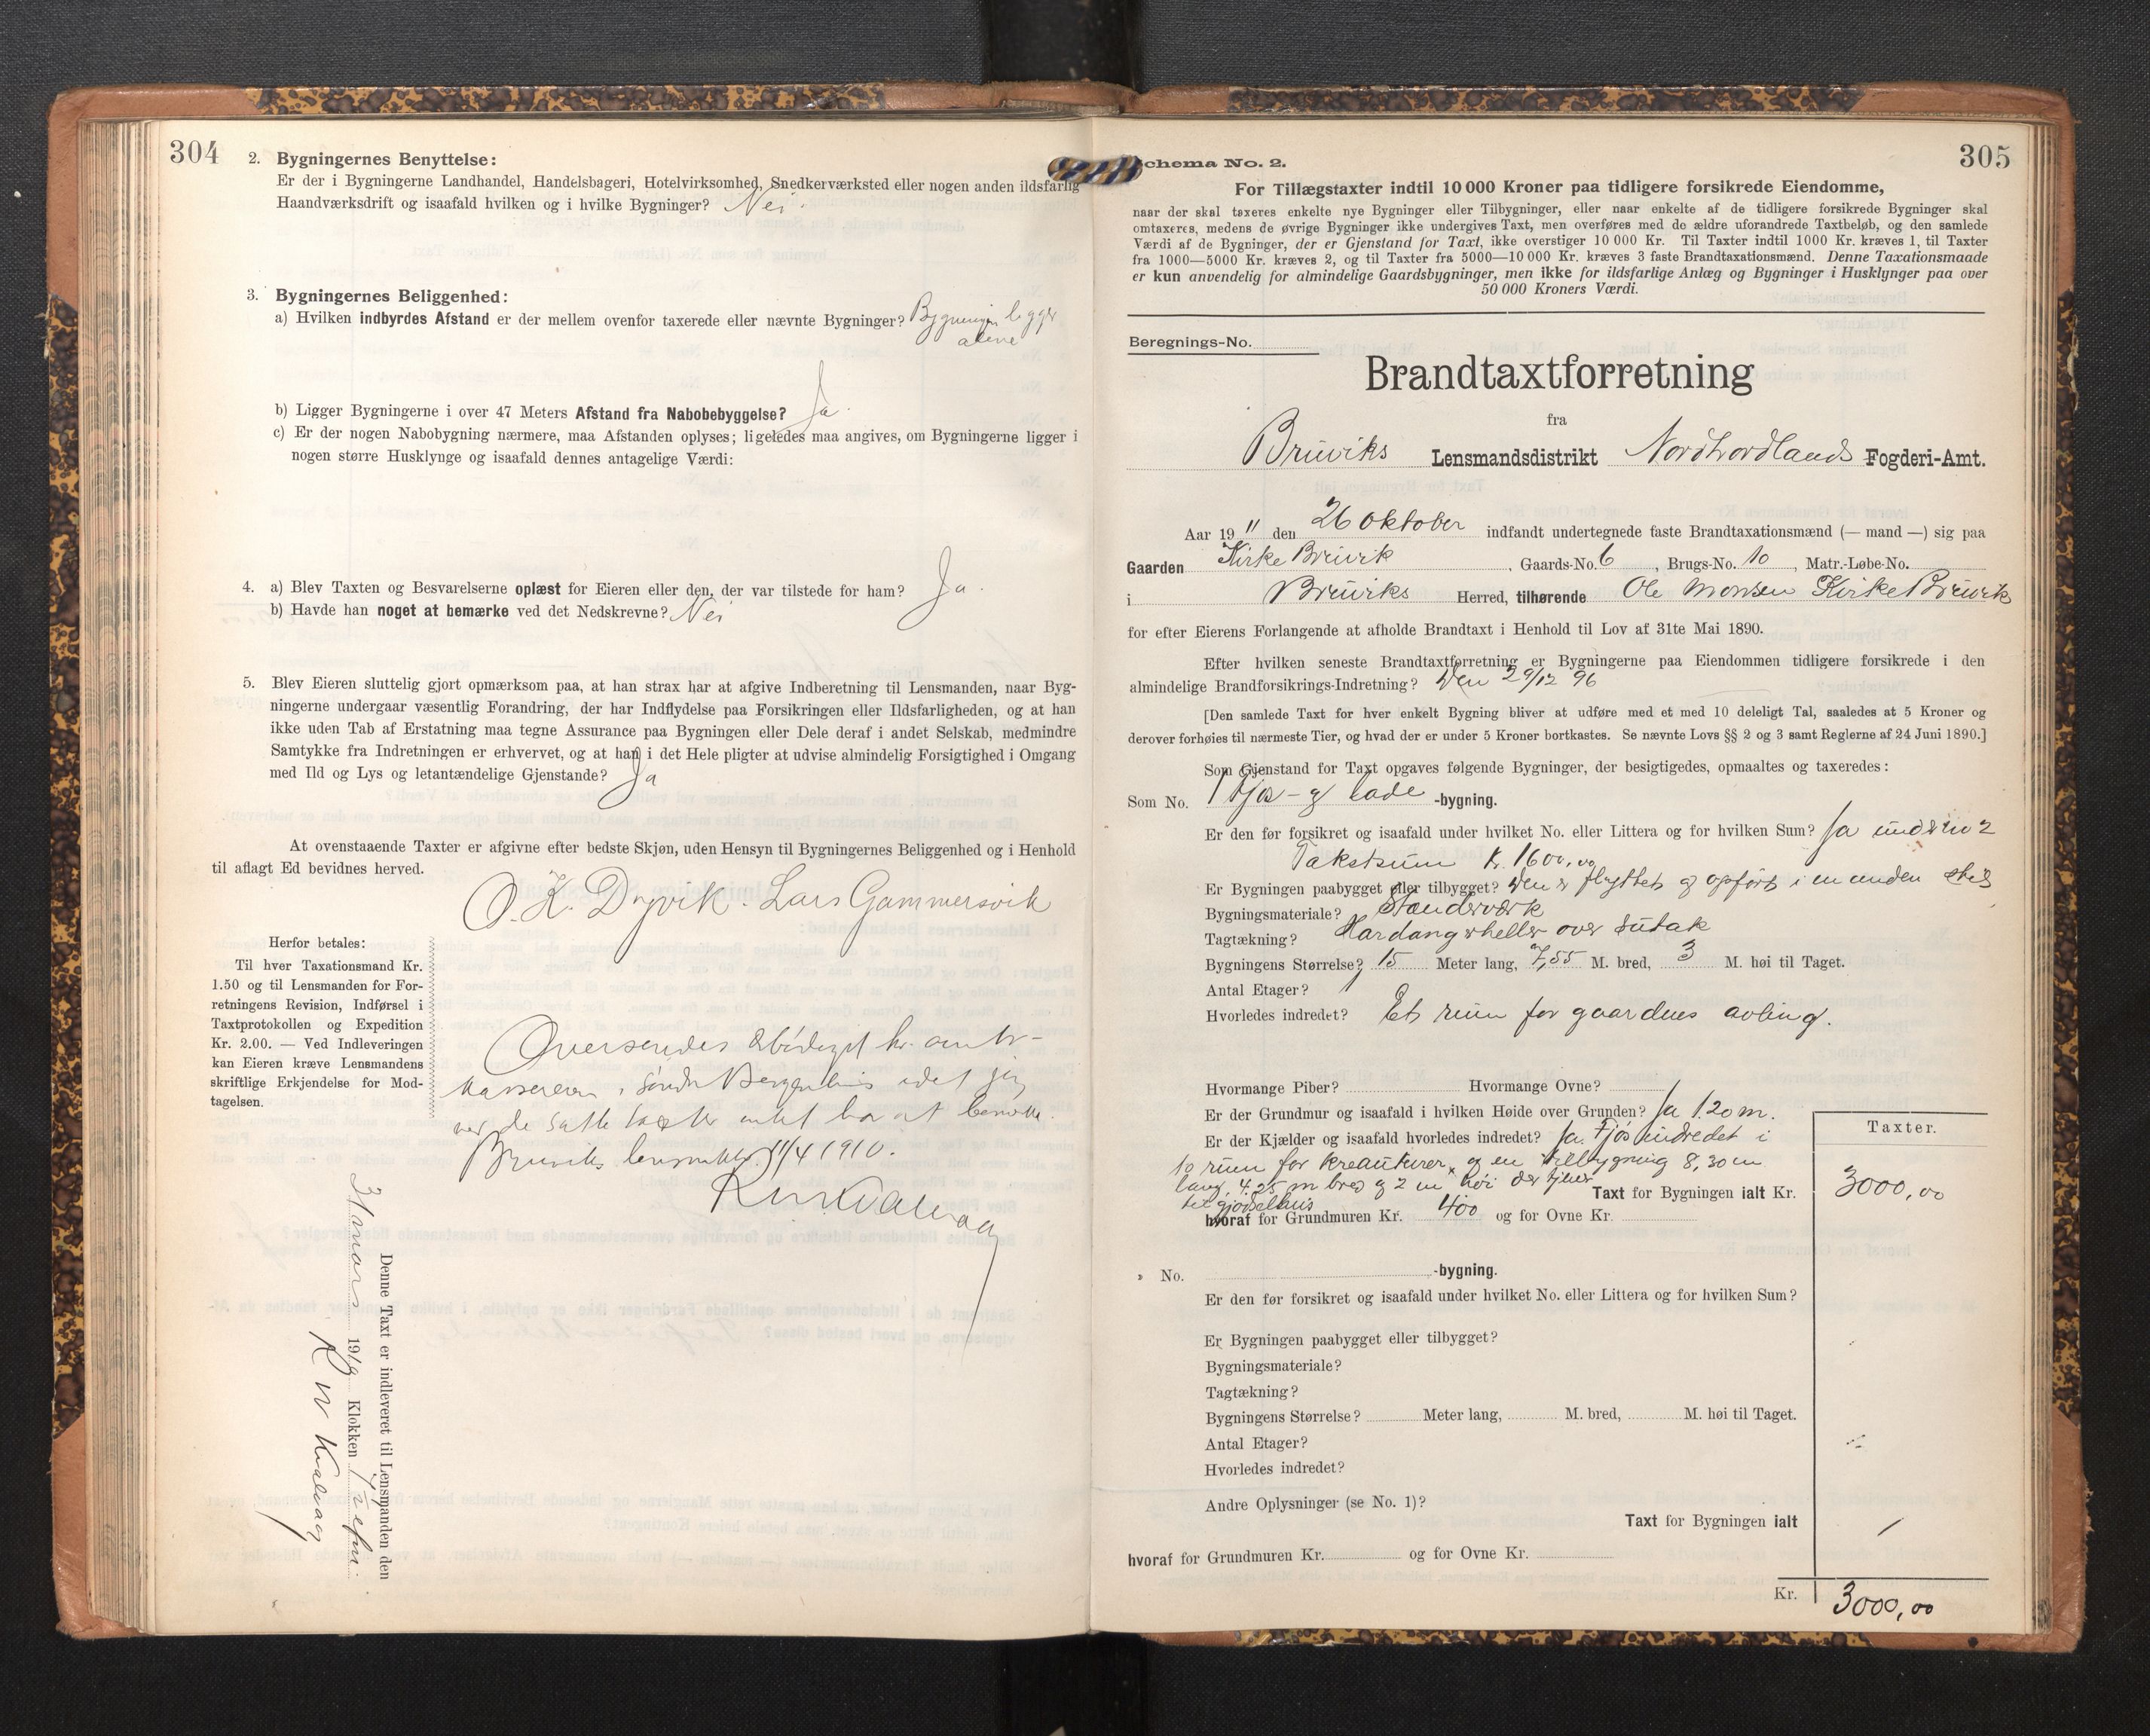 304
2. Bygningernes Benyttelse:
Er der i Bygningerne Landhandel, Handelsbageri, Hotelvirksomhed, Snedkerværksted eller nogen anden ildsfarlig
Haandværksdrift og isaafald hvilken og i hvilke Bygninger? Nei.
3. Bygningernes Beliggenhed:
a) Hvilken indbyrdes Afstand er der mellem ovenfor taxerede eller nævnte Bygninger? Bygningen ligger
alene
b) Ligger Bygningerne i over 47 Meters Afstand fra Nabobebyggelse? Ja.
c) Er der nogen Nabobygning nærmere, maa Afstanden oplyses; ligeledes maa angives, om Bygningerne ligger i
nogen større Husklynge og isaafald dennes antagelige Værdi:
4. a) Blev Taxten og Besvarelserne oplæst for Eieren eller den, der var tilstede for ham? Ja.
b) Havde han noget at bemærke ved det Nedskrevne? Nei
5. Blev Eieren sluttelig gjort opmærksom paa, at han strax har at afgive Indberetning til Lensmanden, naar Byg-
ningerne undergaar væsentlig Forandring, der har Indflydelse paa Forsikringen eller Ildsfarligheden, og at han
ikke uden Tab af Erstatning maa tegne Assurance paa Bygningen eller Dele deraf i andet Selskab, medmindre
Samtykke fra Indretningen er erhvervet, og at han i det Hele pligter at udvise almindelig Forsigtighed i Omgang
med Ild og Lys og letantændelige Gjenstande? Ja
At ovenstaaende Taxter er afgivne efter bedste Skjøn, uden Hensyn til Bygningernes Beliggenhed og i Henhold
til aflagt Ed bevidnes herved.
O. K. Dyvik. Lars Gammersvik
Herfor betales:
Til hver Taxationsmand Kr.
1.50 og til Lensmanden for For-
retningens Revision, Indførsel i
Taxtprotokollen og Expedition
Kr. 2.00. — Ved Indleveringen
kan Eieren kræve Lensmandens
skriftlige Erkjendelse for Mod-
tagelsen.
Oversendes ærbødigst hr. amts-
kassereren i Søndre Bergenhus idet jeg
ver de satte takster intet har at bemerke.
Bruviks lensmkt. 11/4 1910.
Denne Taxt er indleveret til Lensmanden den
31 mars 19 Klokken
305
Schema No. 2.
For Tillægstaxter indtil 10 000 Kroner paa tidligere forsikrede Eiendomme,
naar der skal taxeres enkelte nye Bygninger eller Tilbygninger, eller naar enkelte af de tidligere forsikrede Bygninger skal
omtaxeres, medens de øvrige Bygninger ikke undergives Taxt, men overføres med de ældre uforandrede Taxtbeløb, og den samlede
Værdi af de Bygninger, der er Gjenstand for Taxt, ikke overstiger 10 000 Kr. Til Taxter indtil 1000 Kr. kræves 1, til Taxter
fra 1000—5000 Kr. kræves 2, og til Taxter fra 5000—10 000 Kr. kræves 3 faste Brandtaxationsmænd. Denne Taxationsmaade
er kun anvendelig for almindelige Gaardsbygninger, men ikke for ildsfarlige Anlæg og Bygninger i Husklynger paa over
50 000 Kroners Værdi.
Beregnings-No.
Brandtaxtforretning
fra
Bruviks Lensmandsdistrikt Nordhordlands Fogderi-Amt.
Aar 19 11 den 26 oktober indfandt undertegnede faste Brandtaxationsmænd (— mand —) sig paa
Gaarden Kirke Bruvik, Gaards-No. 6, Brugs-No. 10, Matr.-Løbe-No.
i Bruviks Herred, tilhørende Ole Monsen Kirke Bruvik
for efter Eierens Forlangende at afholde Brandtaxt i Henhold til Lov af 31te Mai 1890.
Efter hvilken seneste Brandtaxtforretning er Bygningerne paa Eiendommen tidligere forsikrede i den
almindelige Brandforsikrings-Indretning? Den 29/12 96
[Den samlede Taxt for hver enkelt Bygning bliver at udføre med et med 10 deleligt Tal, saaledes at 5 Kroner og
derover forhøies til nærmeste Tier, og hvad der er under 5 Kroner bortkastes. Se nævnte Lovs §§ 2 og 3 samt Reglerne af 24 Juni 1890.]
Som Gjenstand for Taxt opgaves følgende Bygninger, der besigtigedes, opmaaltes og taxeredes:
Som No. 1 Fjøs- og lade -bygning.
Er den før forsikret og isaafald under hvilket No. eller Littera og for hvilken Sum? Ja under no 2
Takstsum Kr. 1600,00
Er Bygningen paabygget eller tilbygget? Den er flyttet og opført i en anden skik
Bygningsmateriale? Standerværk
Tagtækning? Hardangerheller over sutak
Bygningens Størrelse? 15 Meter lang, 7,55 M. bred, 3 M. høi til Taget.
Antal Etager? 1
Hvorledes indredet? Et rum for gaardens avling.
Hvormange Piber? Hvormange Ovne?
Er der Grundmur og isaafald i hvilken Høide over Grunden? Ja 1.20 m.
Er der Kjælder og isaafald hvorledes indredet? Ja. Fjøs indredet i
10 rum for kreaturer, og en tilbygning 8,30 m
lang, 4.25 m bred og 2 m høi der tjener
til gjødselhus
Taxter.
Taxt for Bygningen ialt Kr. 3000,00
hvoraf for Grundmuren Kr. 400 og for Ovne Kr.
" No. -bygning.
Er den før forsikret og isaafald under hvilket No. eller Littera og for hvilken Sum?
Er Bygningen paabygget eller tilbygget?
Bygningsmateriale?
Tagtækning?
Bygningens Størrelse? Meter lang, M. bred, M. høi til Taget.
Antal Etager?
Hvorledes indredet?
Andre Oplysninger (se No. 1)?
Taxt for Bygningen ialt
hvoraf for Grundmuren Kr. og for Ovne Kr.
Kr. 3000,00